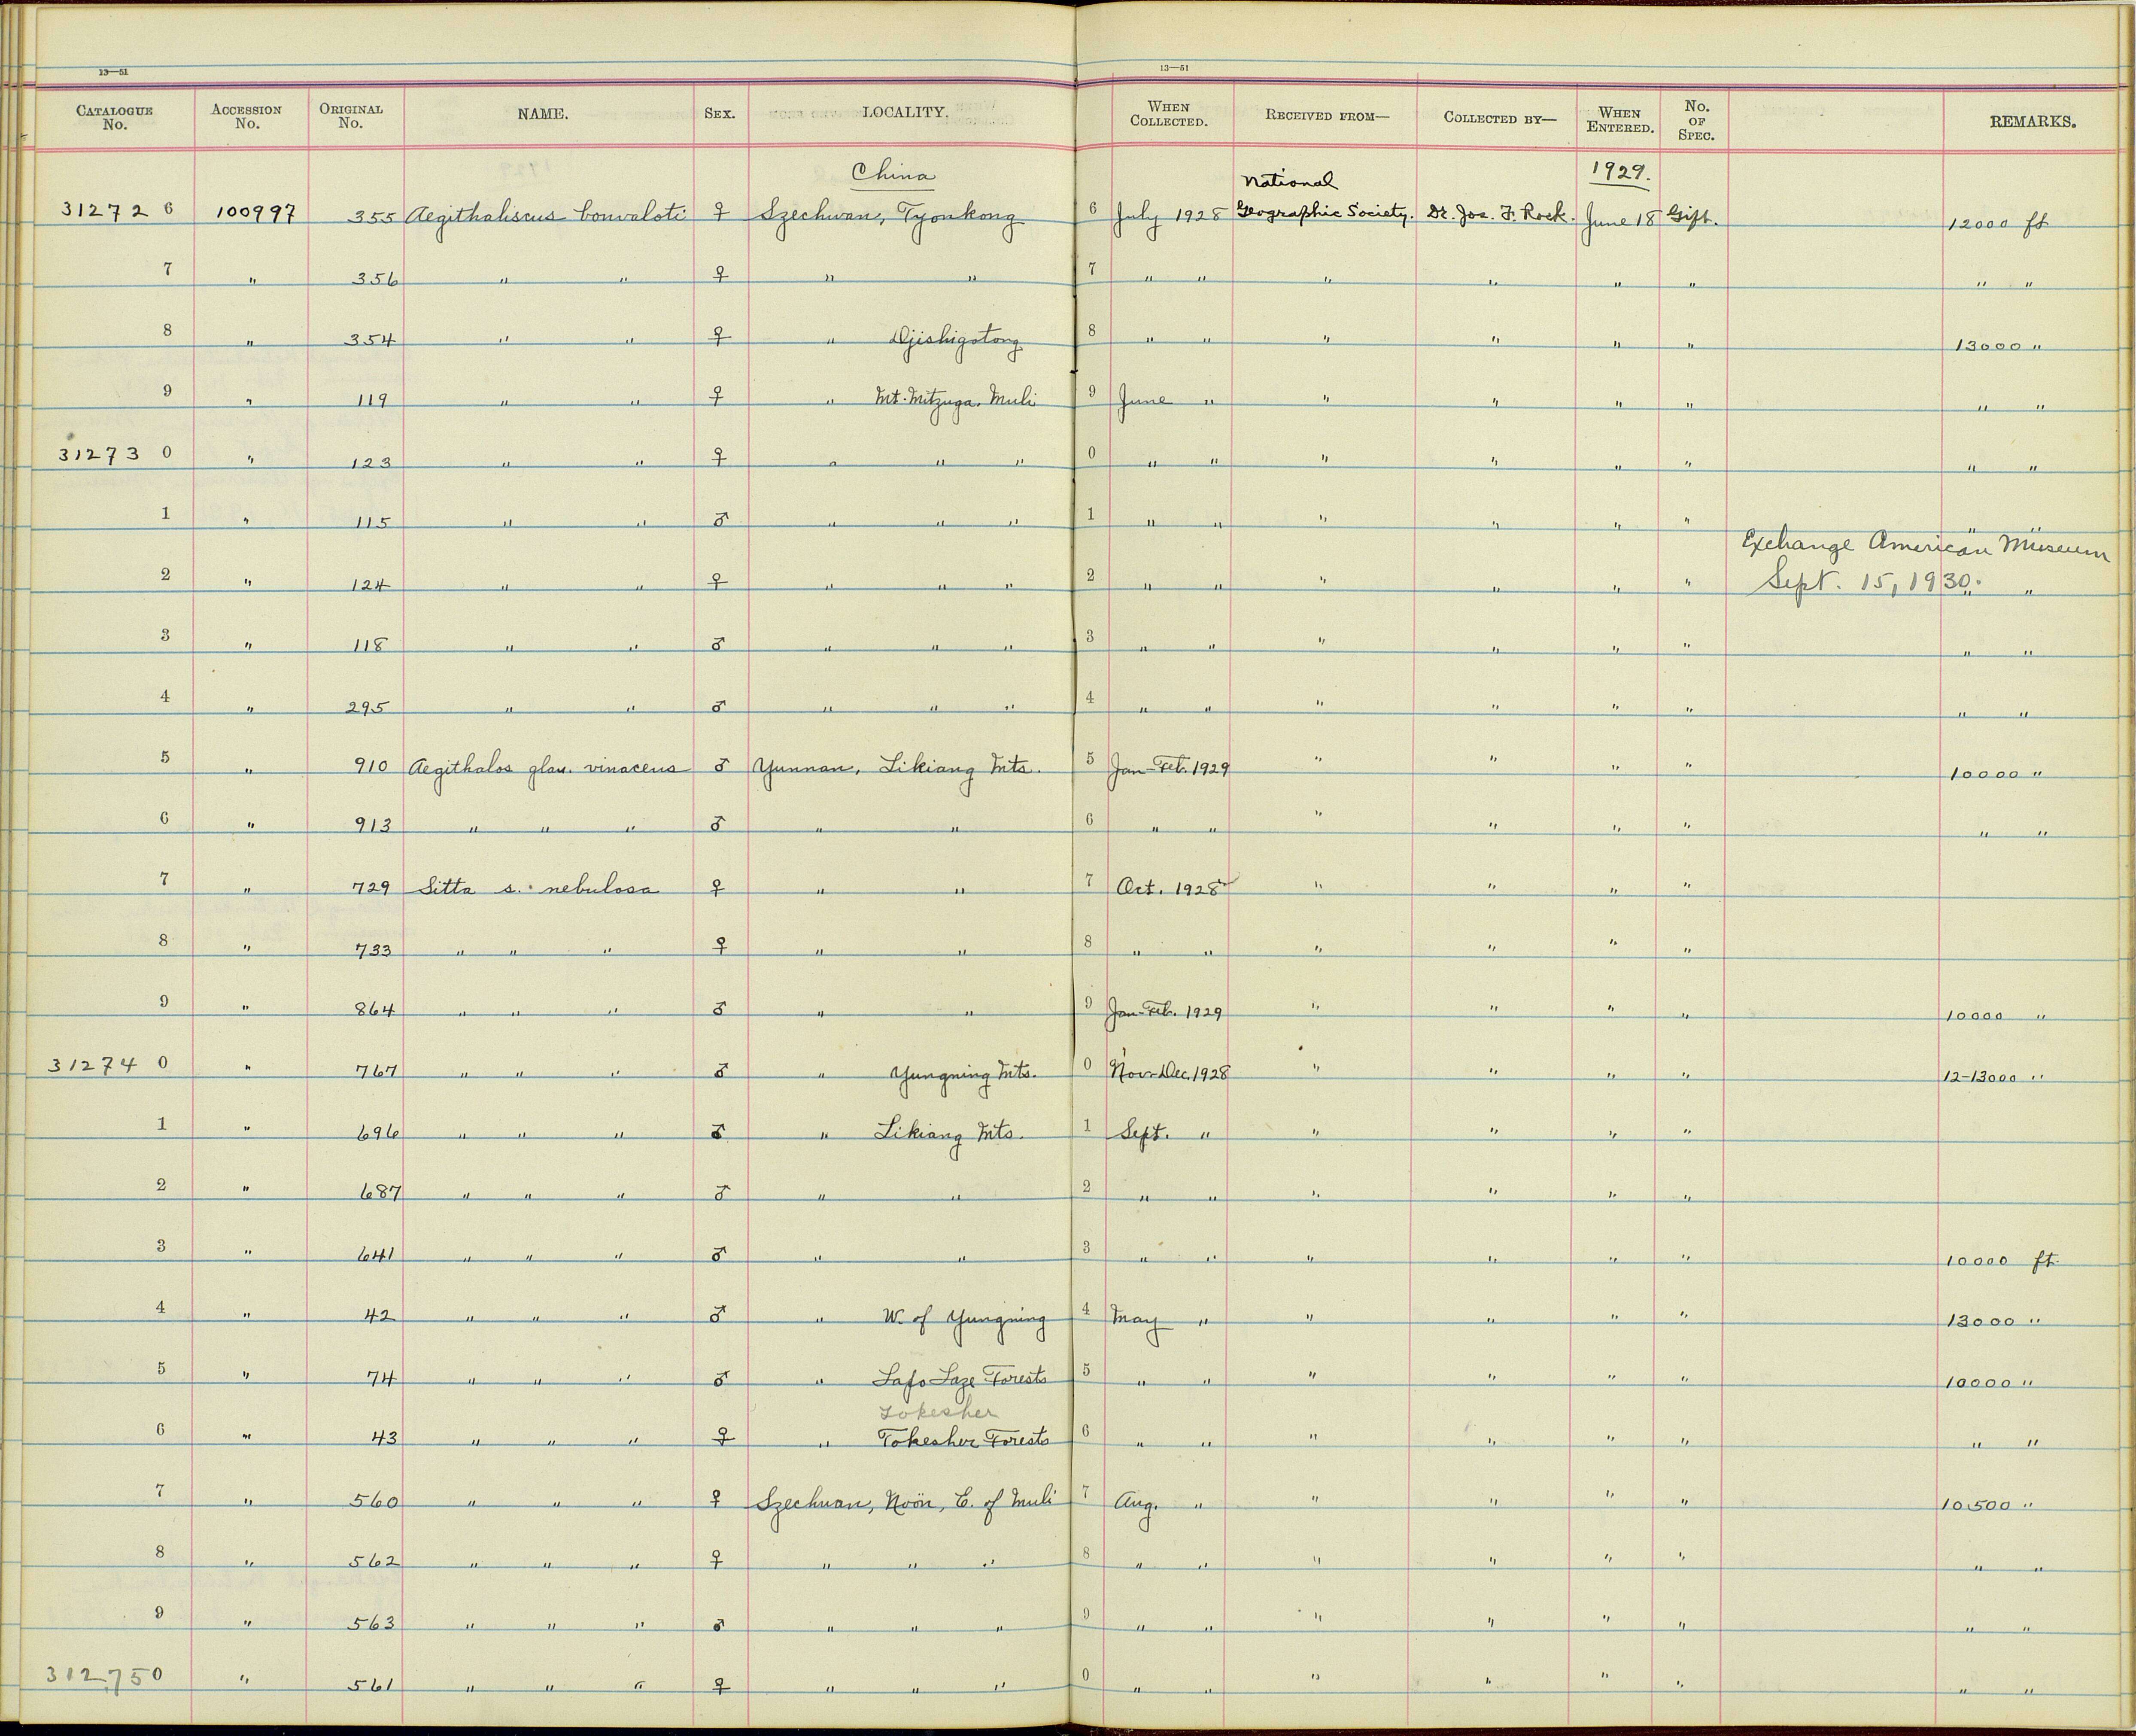 13—51 13—51
CATALOGUE No. ACCESSION No. ORIGINAL No. NAME. SEX. LOCALITY. WHEN COLLECTED. RECEIVED FROM— COLLECTED BY— WHEN ENTERED. No. OF SPEC. REMARKS.
China 1929.
31272 6 100997 355 Aegithaliscus bonvaloti ♀ Szechwan, Tyonkong 6 July 1928 National Geographic Society. Dr. Jos. F. Rock. June 18 Gift. 12000 ft
7 " 356 " " ♀ " " 7 " " " " " " " "
8 " 354 " " ♀ " Djishigotong 8 " " " " " " 13000 "
9 " 119 " " ♀ " Mt. Mitzuga, Muli 9 June " " " " " " "
31273 0 " 123 " " ♀ " " " 0 " " " " " " " "
1 " 115 " " ♂ " " " 1 " " " " " " " "
Exchange American Museum
2 " 124 " " ♀ " " " 2 " " " " " " Sept. 15, 1930. " "
3 " 118 " " ♂ " " " 3 " " " " " " " "
4 " 295 " " ♂ " " " 4 " " " " " " " "
5 " 910 Aegithalos glau. vinaceus ♂ Yunnan, Likiang Mts. 5 Jan-Feb. 1929 " " " " 10000 "
6 " 913 " " " ♂ " " 6 " " " " " " " "
7 " 729 Sitta s. nebulosa ♀ " " 7 Oct. 1928 " " " "
8 " 733 " " " ♀ " " 8 " " " " " "
9 " 864 " " " ♂ " " 9 Jan-Feb. 1929 " " " " 10000 "
31274 0 " 767 " " " ♂ " Yungning Mts. 0 Nov-Dec. 1928 " " " " 12-13000 "
1 " 696 " " " ♂ " Likiang Mts. 1 Sept. " " " " "
2 " 687 " " " ♂ " " 2 " " " " " "
3 " 641 " " " ♂ " " 3 " " " " " " 10000 ft.
4 " 42 " " " ♂ " W. of Yungning 4 May " " " " " 13000 "
5 " 74 " " " ♂ " Lafo Laze Forests 5 " " " " " " 10000 "
Tokesher
6 " 43 " " " ♀ " Tokesher Forests 6 " " " " " " " "
7 " 560 " " " ♀ Szechuan, Noön, E. of Muli 7 Aug. " " " " " 10500 "
8 " 562 " " " ♀ " " " 8 " " " " " " " "
9 " 563 " " " ♂ " " " 9 " " " " " " " "
312750 " 561 " " " ♀ " " " 0 " " " " " " " "